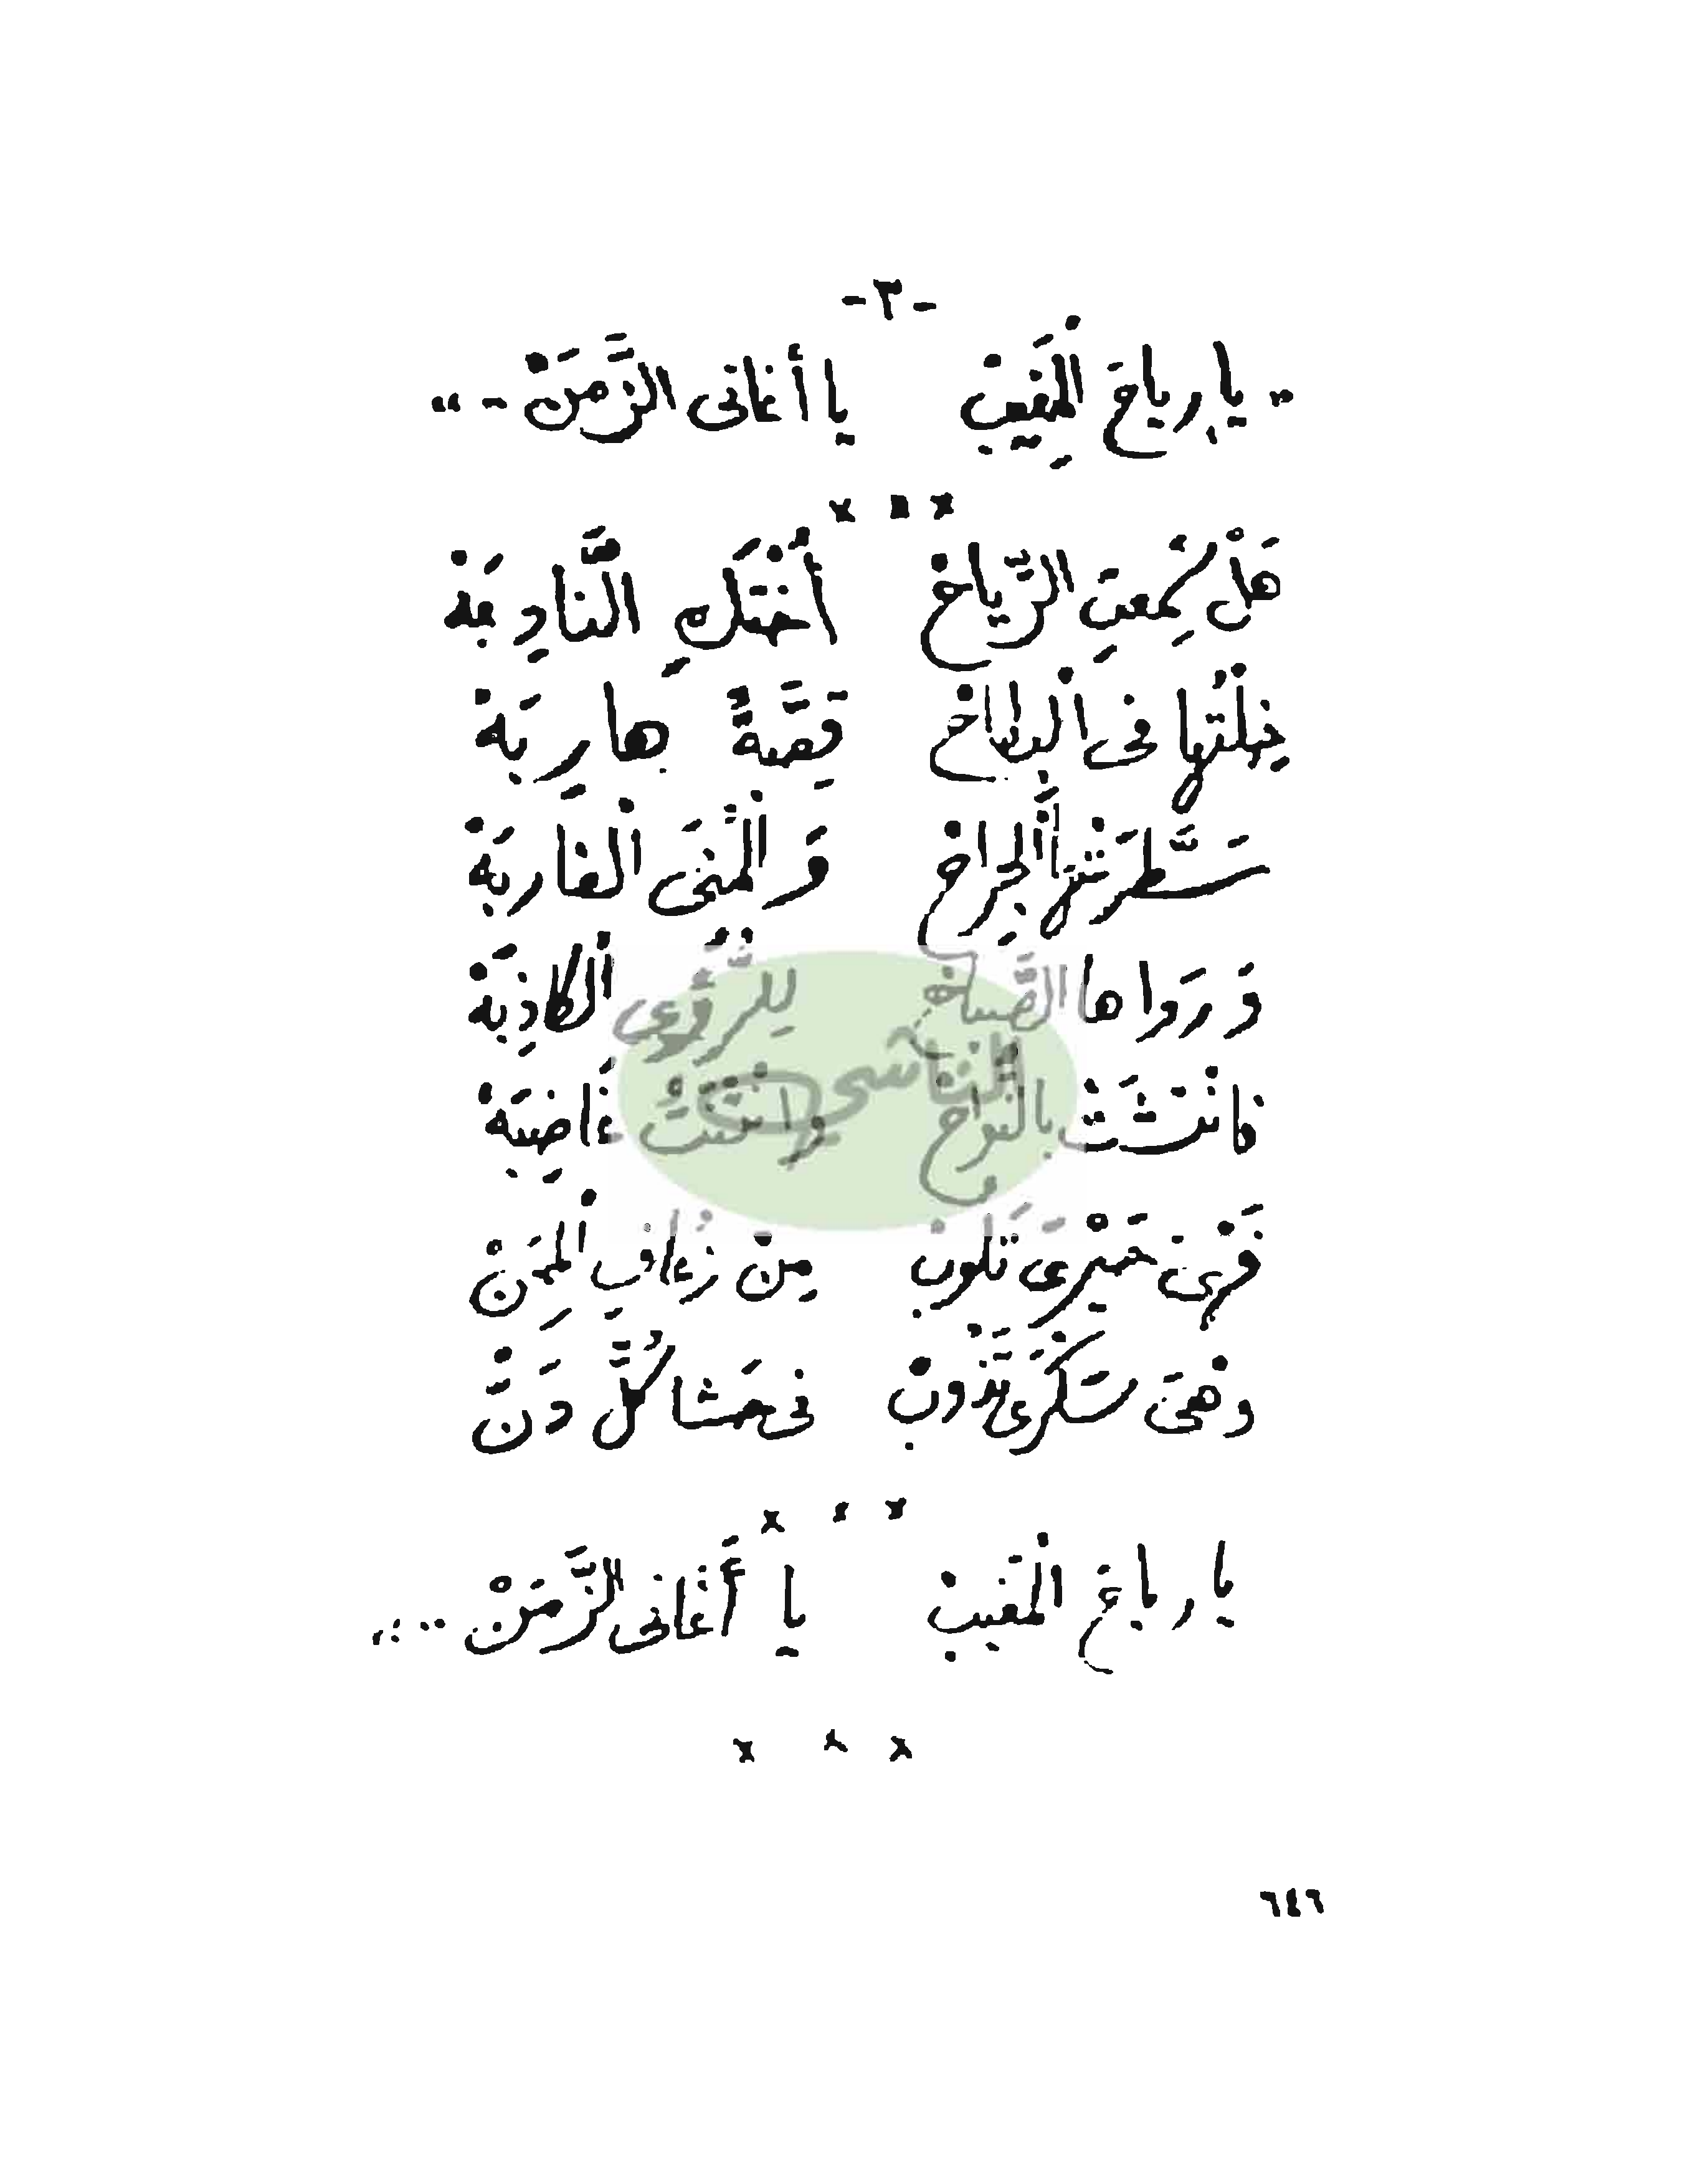 -٣-
" يا رِياحَ الْمَغِيبْ يا أَغانى الزَّمَنْ - "
هَلْ سَمِعتِ الرِّياحْ أُخْتَكِ النَّادِبَهْ
خِلْتُها فى الْبِطاحْ قِصَّةً هارِبَهْ
سَطَّرَتْها الْجِراحْ وَالْمُنَى الْغارِبَهْ
وَرَوَاها الصَّباحْ لِلرُّؤَى الْكاذِبَهْ
فانْتَشَتْ بِالنُّواحْ وانْثَنَتْ غَاضِبَهْ
فَهْىَ حَيْرَى تَلُوبْ مِنْ زُعافِ الْمِحَنْ
وَهْىَ سَكْرَى تَذُوبْ فى حَشا كُلِّ دَنّْ
يا رياحَ الْمَغيبْ يا أَغانى الزَّمَنْ ..."
٦٤٦
النَاشري